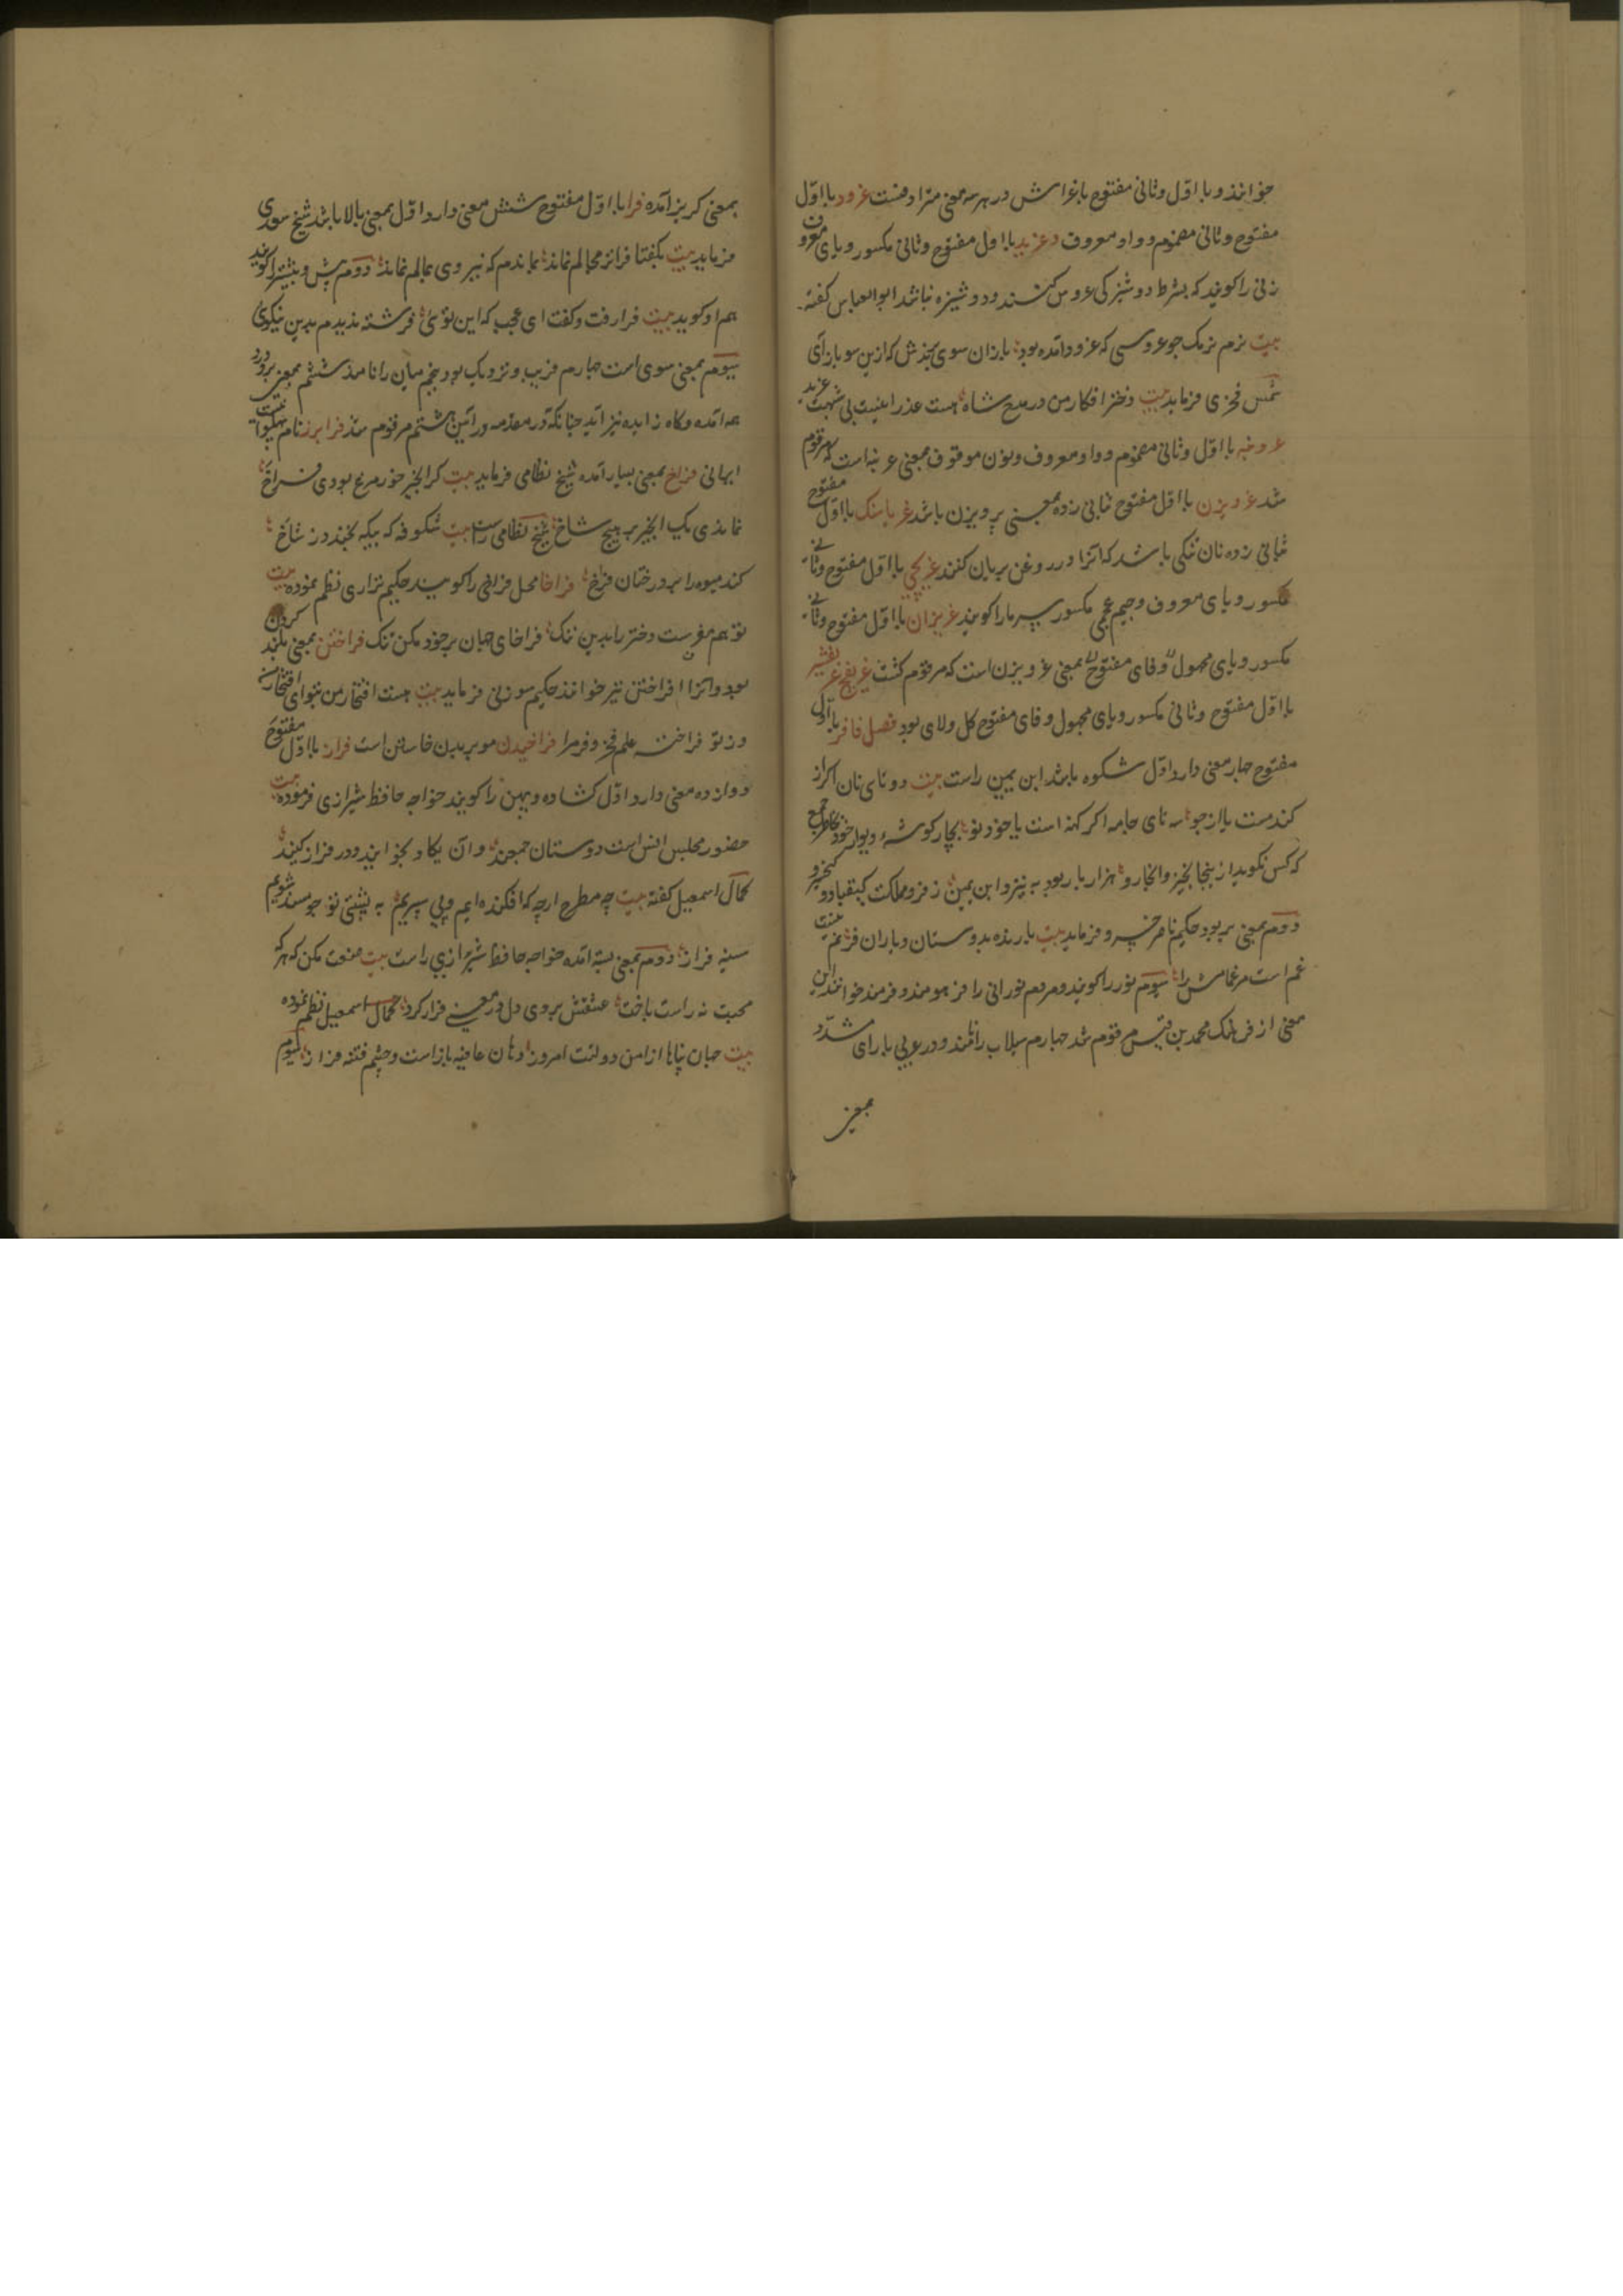 خوانند و با اول و ثانی مفتوح با غراش در هر سه معنی مترادفست غرود با اول
مفتوح و ثانی مضموم و واو معروف و غرید با اول مفتوح و ثانی مکسور و یای معروف
زنی را کویند که بشرط دوشیزکی عروس کنند و دوشیزه نباشد ابوالعباس کفته
بیت نرم نرمک چو عروسی که غرود آمده بود باز زان سوی که ازین سو باز آی
شمس فخری فرماید بیت دختر افکار من در مدح شاه هست عذرا نیست بی شبهت غرید
غرونه با اول و ثانی مضموم و واو معروف و نون موقوف بمعنی غرنبه است که مرقوم
شد غرویزن با اول مفتوح ثانی زده بمعنی پرویزن باشد غرباسنک با اول مفتوح
ثانی زده نان تنکی باشد که آنرا در روغن بریان کنند غریچی با اول مفتوح و ثانی
مکسور و یای معروف و جیم عجمی مکسور سرما را کویند غریزان با اول مفتوح و ثانی
مکسور و یای مجهول بمعنی غرویزن است که مرقوم کشت غریفج غریفش
با اول مفتوح و ثانی مکسور و یای مجهول و فای مفتوح کل و لای بود فصل فا فر با اول
مفتوح چهار معنی دارد اول شکوه باشد ابن یمین راست بیت دو تای نان اکر از
کندمست یا از جو سه تای جامه اکر کهنه است یا خود نو بچار کوشه دیوار خود بخاطر جمع
که کس نکوید ازینجا بخیز و انجا رو هزار بار بود به بنزد ابن یمین ز فر مملکت کیقباد و کیخسرو
دوم بمعنی پر بود حکیم ناصر خسرو فرماید بیت
غم است مرغامش را سیوم نور را کویند و مردم نورانی را فرهومند و فرمند خوانند این
معنی از فرهنک محمد بن قیس مرقوم شد چهارم سیلاب را نامند و در عربی با رای مشدد
بمعنی
بمعنی کریز آمده فرا با اول مفتوح شش معنی دارد اول بمعنی بالا باشد شیخ سعدی
فرماید بیت بکفتا فراتر مجالم نماند بماندم که نیروی بالم نماند دوم پیش و بیشتر را کویند
هم او کوید بیت فرا رفت و کفت ای عجب که این توئی فرشته ندیدم بدین نیکوی
سیوم بمعنی سوی است چهارم قریب و نزدیک بود پنجم میان را نامند ششم بمعنی بر و در
هم آمده و کاه زایده نیز آید چنانکه در مقدمه در آئین هشتم مرقوم شد فرابرز نام پهلوانیست
ایرانی فراخ بمعنی بسیار آمده شیخ نظامی فرماید بیت کر انجیر خور مرغ بودی فراخ
نماندی یک انجیر بر هیچ شاخ شیخ نظامی راست بیت شکوفه که بیکه نخندد ز شاخ
کند میوه را بر درختان فراخ فراخا محل فراخی را کویند حکیم نزاری نظم نموده بیت
تو هم مفرست دختر را بدین ننک فراخای جهان بر خود مکن تنک فراختن بمعنی بلند کردن
بود و آنرا افراختن نیز خوانند حکیم سوزنی فرماید بیت هست افتخار من بتو ای افتخار
وز تو فراخته علم فخر و فر مرا فراخیدن موی بر بدن خاستن است فراز با اول مفتوح
دوازده معنی دارد اول کشاده و پهن را کویند خواجه حافظ شیرازی فرموده بیت
حضور مجلس انس است و دوستان جمعند و ان یکاد بخوانید و در فراز کنید
کمال اسمعیل کفته بیت چه مطرح ارچه که افکنده ایم و پی سپریم به پشتی تو چو مسند شویم
سینه فراز دوم بمعنی بسته آمده خواجه حافظ شیرازی راست بیت صنعت مکن که هر که
محبت نه راست باخت عشقش بروی دل در معنی فراز کرد کمال اسمعیل نظم نموده
بیت جهان پناها از امن دولتت امروز دهان عافیه باز است و چشم فتنه فراز سیوم